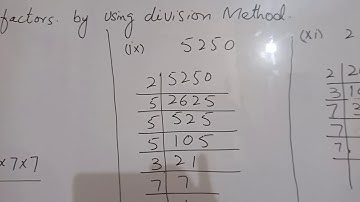 factors. by using division Method.
(ix) 5250
2 | 5250
5 | 2625
5 | 525
5 | 105
3 | 21
7 | 7
1
×7×7
(xi) 2
2 | 2
3 | 1
7 | 3
7
7